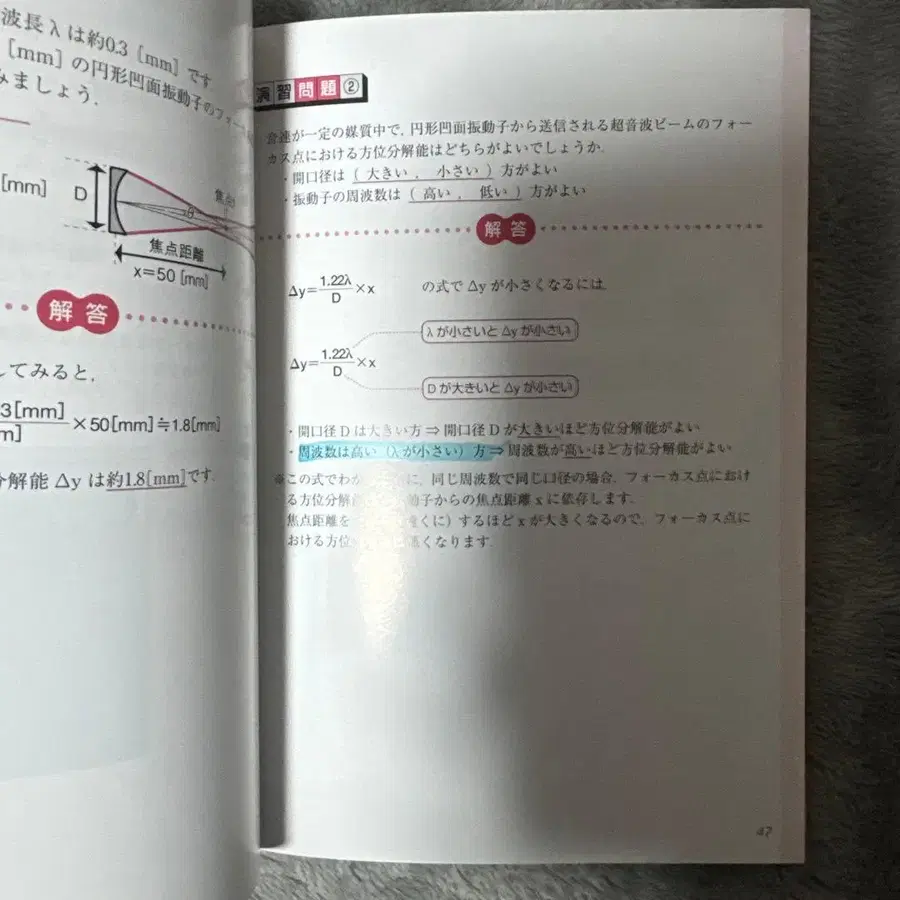 波長λは約0.3［mm］です.
［mm］の円形凹面振動子のフォー
みましょう.
[mm]
D
θ
焦点
焦点距離
x=50［mm］
解答
してみると,
3[mm]
m]
×50[mm]≒1.8[mm]
分解能 Δy は約1.8［mm］です.
演習問題②
音速が一定の媒質中で, 円形凹面振動子から送信される超音波ビームのフォー
カス点における方位分解能はどちらがよいでしょうか.
・開口径は（ 大きい , 小さい ）方がよい
・振動子の周波数は（ 高い , 低い ）方がよい
解答
Δy=1.22λ/D×x の式で Δy が小さくなるには,
λが小さいと Δy が小さい
Δy=1.22λ/D×x
D が大きいと Δy が小さい
・開口径 D は大きい方⇒開口径 D が大きいほど方位分解能がよい
・周波数は高い（λが小さい）方⇒周波数が高いほど方位分解能がよい
※この式でわか に, 同じ周波数で同じ口径の場合, フォーカス点におけ
る方位分解 動子からの焦点距離 x に依存します.
焦点距離を くに）するほど x が大きくなるので, フォーカス点に
おける方位 悪くなります.
47